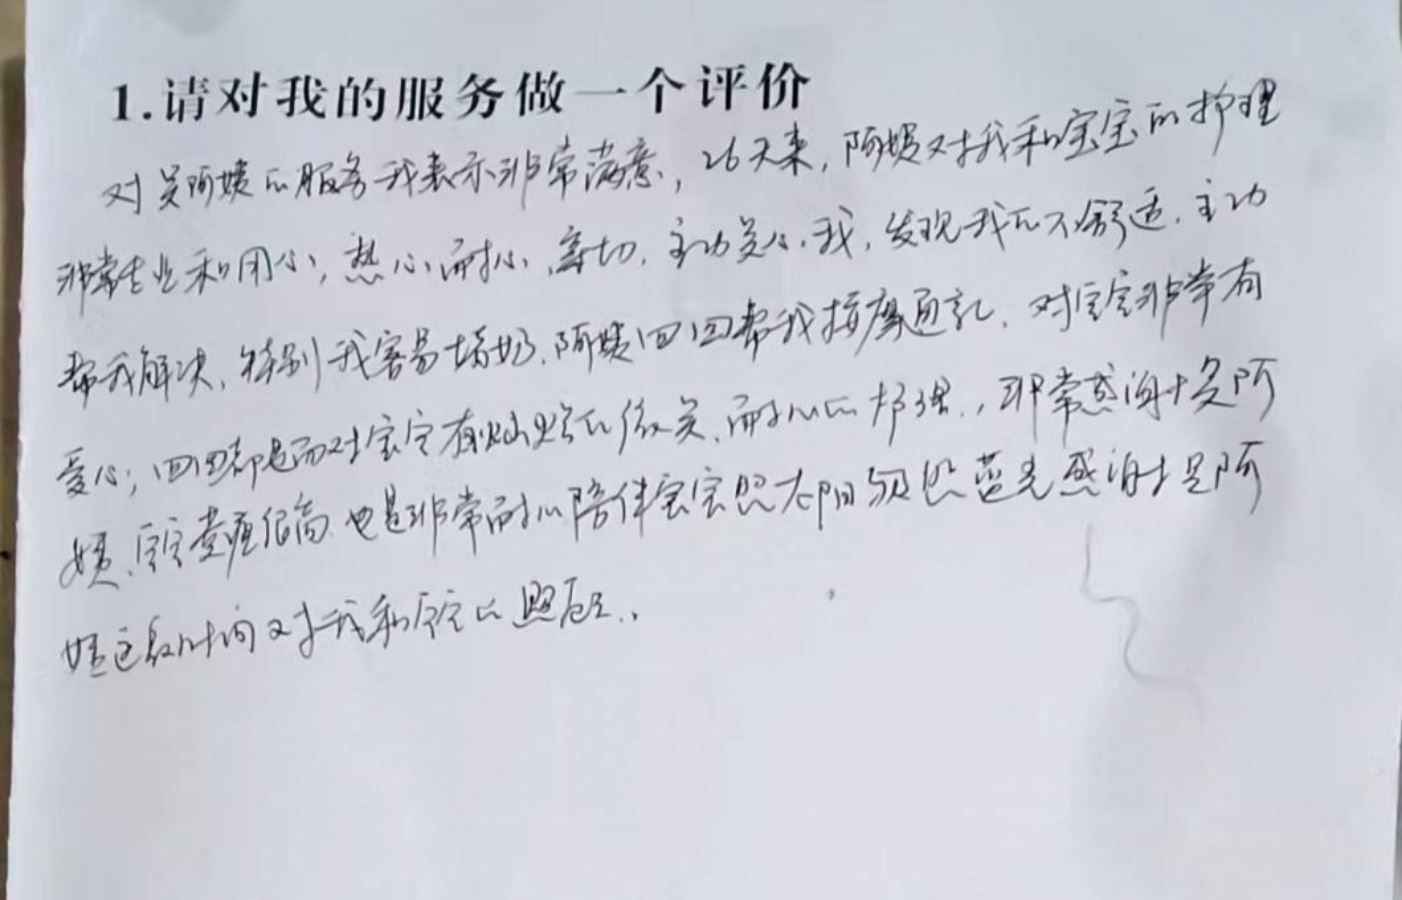 1.请对我的服务做一个评价
对吴阿姨的服务我表示非常满意，26天来，阿姨对我和宝宝的护理
非常专业和用心，热心、耐心、亲切，主动关心我，发现我的不舒适，主动
帮我解决，特别我容易堵奶，阿姨回回帮我按摩通乳，对宝宝非常有
爱心；回回都是面对宝宝有灿烂的微笑，耐心的，非常感谢吴阿
姨，宝宝黄疸很高，也是非常耐心陪伴宝宝照太阳及照蓝光感谢吴阿
姨这段时间对我和宝宝的照顾。